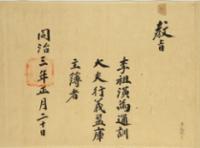 敎旨
李祖演爲通訓
大夫行義盈庫
主簿者
同治三年正月二十日